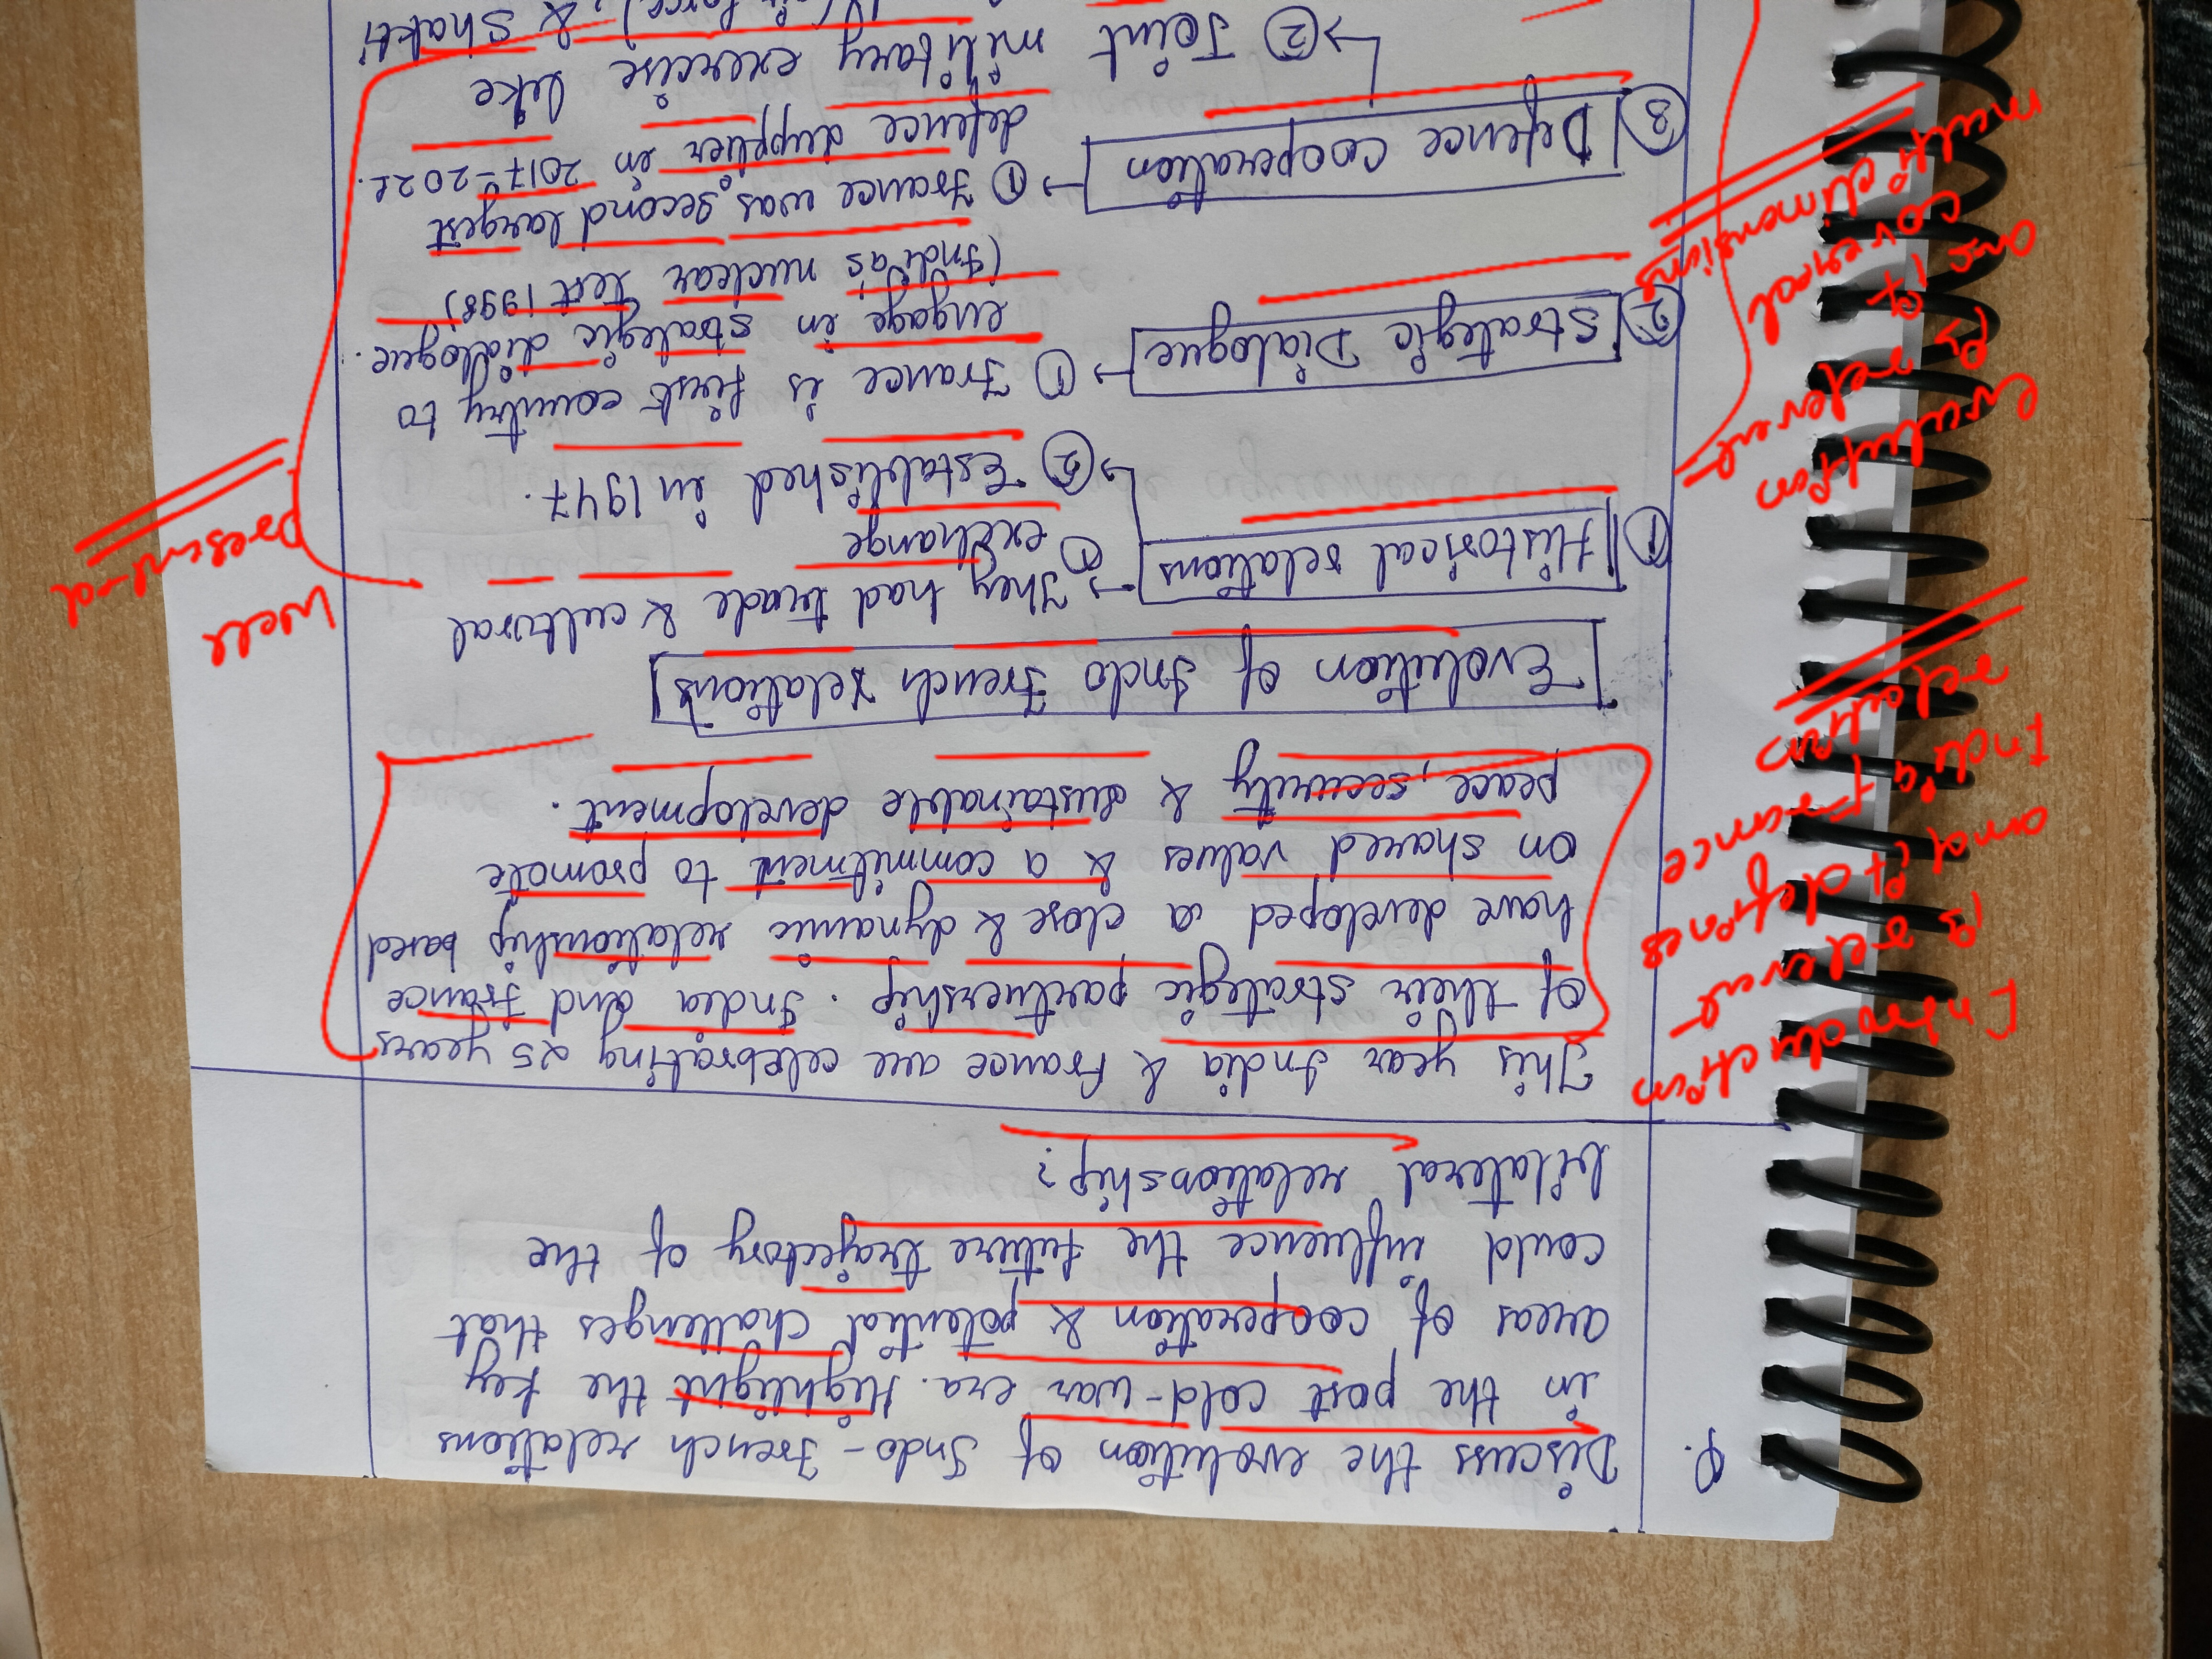 Q. Discuss the evolution of Indo-French relations
in the post cold-war era. Highlight the key
areas of cooperation & potential challenges that
could influence the future trajectory of the
bilateral relationship?
This year India & France are celebrating 25 years
of their strategic partnership. India and France
have developed a close & dynamic relationship based
on shared values & a commitment to promote
peace, security & sustainable development.
Introduction
is relevant
and it defines
India France
relation
Evolution of Indo French relations
① Historical relations → ① They had trade & cultural
exchange
→ ② Established in 1947.
② Strategic Dialogue → ① France is first country to
engage in strategic dialogue.
(India's nuclear test 1998)
③ Defence cooperation → ① France was second largest
defence supplier in 2017-2021.
→ ② Joint military exercise like
(air force), & Shakti
Evolution
is relevant
as it
coveral
multi dimensions
Well
Present-d